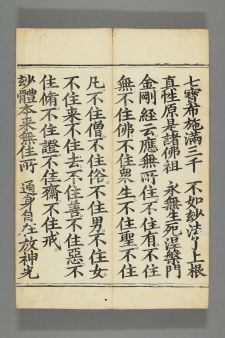 七寶布施滿三千　不如玅法了上根
真性原是諸佛祖　永無生死涅槃門
金剛經云應無所住不住有不住
無不住佛不住衆生不住聖不住
凡不住僧不住俗不住男不住女
不住來不住去不住善不住惡不
住脩不住證不住齋不住戒
玅體本来無住所　通身自在放神光